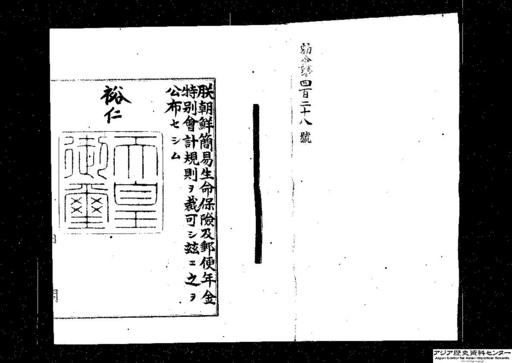 勅令第四百二十八號
朕朝鮮簡易生命保險及郵便年金
特別會計規則ヲ裁可シ茲ニ之ヲ
公布セシム
裕仁
天皇
御璽
アジア歴史資料センター
Japan Center for Asian Historical Records